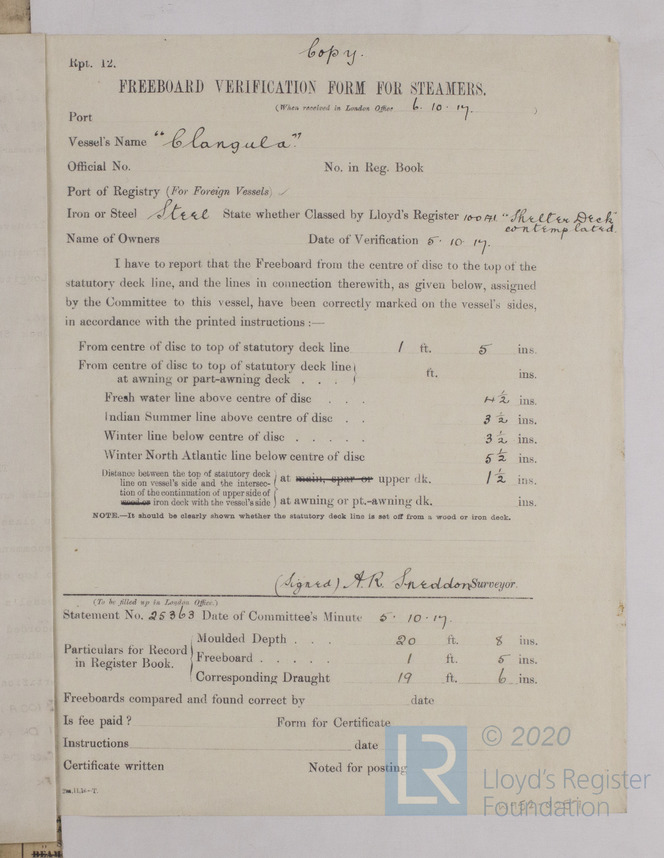 Copy.
Rpt. 12.
FREEBOARD VERIFICATION FORM FOR STEAMERS.
(When received in London Office 6.10.17. )
Port
Vessel's Name "Clangula"
Official No. No. in Reg. Book
Port of Registry (For Foreign Vessels)
Iron or Steel Steel State whether Classed by Lloyd's Register 100A1 "Shelter Deck"
contemplated
Name of Owners Date of Verification 5.10.17.
I have to report that the Freeboard from the centre of disc to the top of the
statutory deck line, and the lines in connection therewith, as given below, assigned
by the Committee to this vessel, have been correctly marked on the vessel's sides,
in accordance with the printed instructions :—
From centre of disc to top of statutory deck line 1 ft. 5 ins.
From centre of disc to top of statutory deck line
at awning or part-awning deck . . . ft. ins.
Fresh water line above centre of disc . . . 4½ ins.
Indian Summer line above centre of disc . . 3½ ins.
Winter line below centre of disc . . . . . 3½ ins.
Winter North Atlantic line below centre of disc 5½ ins.
Distance between the top of statutory deck
line on vessel's side and the intersec-
tion of the continuation of upper side of
wood or iron deck with the vessel's side
at main, spar or upper dk. 1½ ins.
at awning or pt.-awning dk. ins.
NOTE.—It should be clearly shown whether the statutory deck line is set off from a wood or iron deck.
(Signed) A.R. Sneddon Surveyor.
(To be filled up in London Office.)
Statement No. 25363 Date of Committee's Minute 5.10.17.
Particulars for Record
in Register Book.
Moulded Depth . . . 20 ft. 8 ins.
Freeboard . . . . . 1 ft. 5 ins.
Corresponding Draught 19 ft. 6 ins.
Freeboards compared and found correct by date
Is fee paid ? Form for Certificate
Instructions date
Certificate written Noted for posting
LR
© 2020
Lloyd's Register
Foundation